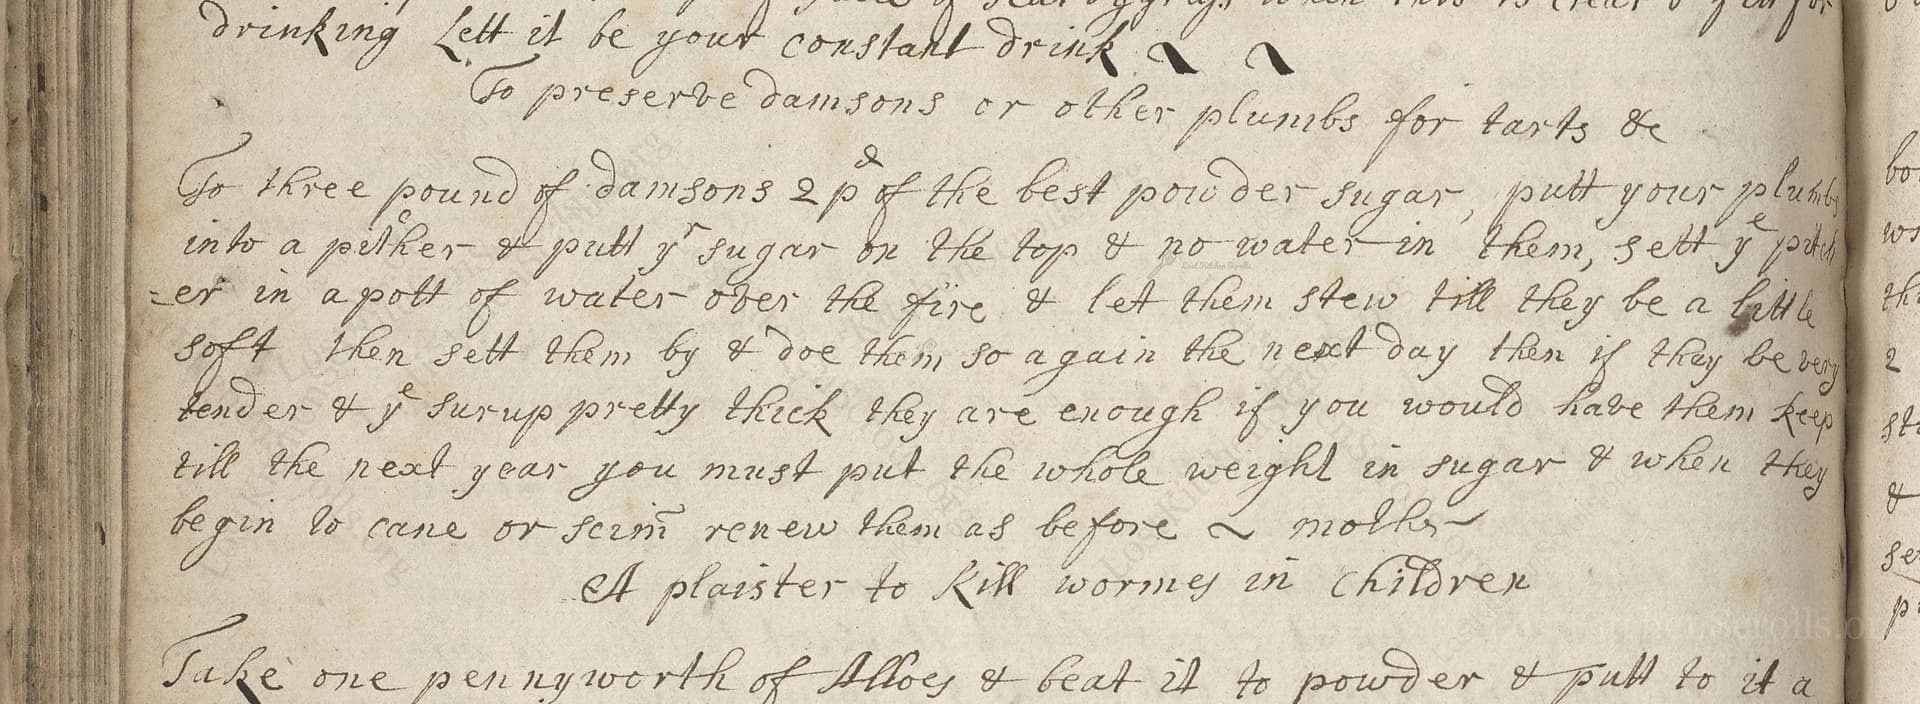 drinking Lett it be your constant drink
To preserve damsons or other plumbs for tarts &c
To three pound of damsons 2 pd of the best powder sugar, putt your plumbs
into a pither & putt yr sugar on the top & no water in them, sett ye pitch
=er in a pott of water over the fire & let them stew till they be a little
soft then sett them by & doe them so again the next day then if thay be very
tender & ye surup pretty thick they are enough if you would have them keep
till the next year you must put the whole weight in sugar & when they
begin to cane or scim̄ renew them as before ~ mother
A plaister to kill wormes in Children
Take one pennyworth of Alloes & beat it to powder & putt to it a